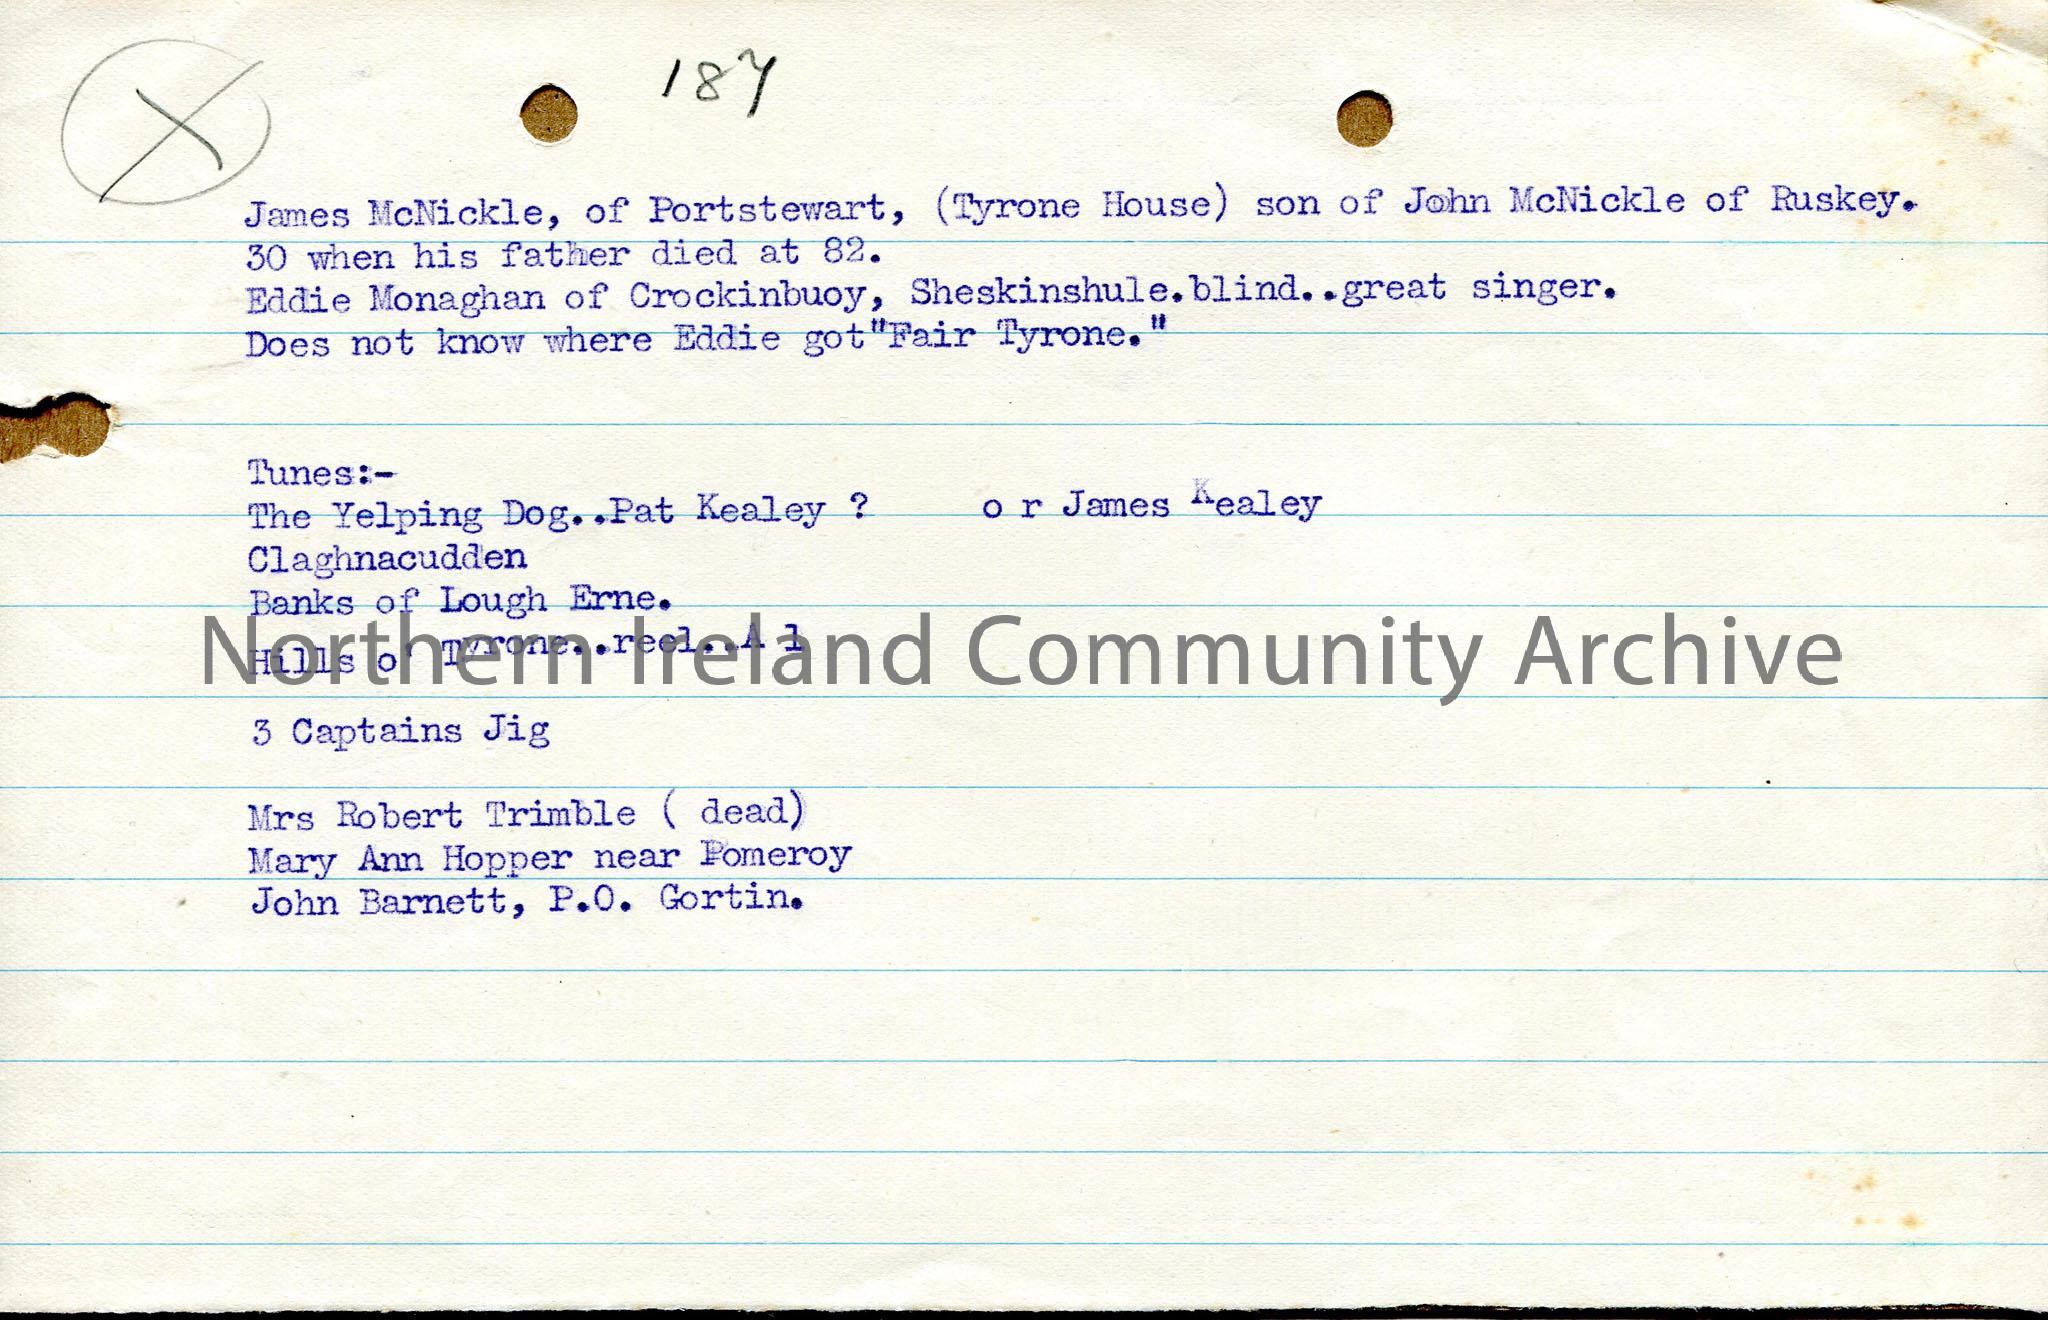 187
James McNickle, of Portstewart, (Tyrone House) son of John McNickle of Ruskey.
30 when his father died at 82.
Eddie Monaghan of Crockinbuoy, Sheskinshule.blind..great singer.
Does not know where Eddie got"Fair Tyrone."
Tunes:-
The Yelping Dog..Pat Kealey ? o r James Kealey
Claghnacudden
Banks of Lough Erne.
Hills of Tyrone..reel..A 1
Northern Ireland Community Archive
3 Captains Jig
Mrs Robert Trimble ( dead)
Mary Ann Hopper near Pomeroy
John Barnett, P.O. Gortin.